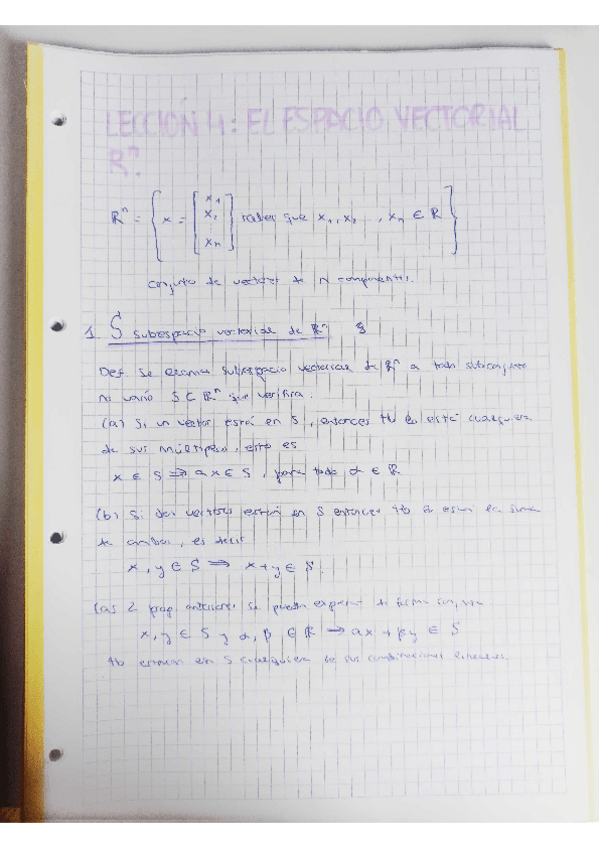 LECCIÓN 4: EL ESPACIO VECTORIAL
Rⁿ.
ℝⁿ = { x = [x₁ x₂ ⋮ xₙ] tales que x₁, x₂ ..., xₙ ∈ ℝ }
conjunto de vectores de N componentes.
1. S subespacio vectorial de ℝⁿ §
Def. Se llama subespacio vectorial de ℝⁿ a todo subconjunto
no vacío S ⊂ ℝⁿ que verifica.
(a) Si un vector está en S, entonces tb lo está cualquiera
de sus múltiplos, esto es
x ∈ S ⇒ αx ∈ S, para todo α ∈ ℝ
(b) Si dos vectores están en S entonces tb lo está la suma
de ambos, es decir
x, y ∈ S ⇒ x+y ∈ S.
Las 2 prop. anteriores se pueden expresar de forma conjunta
x, y ∈ S y α, β ∈ ℝ ⇒ αx + βy ∈ S
tb estarán en S cualquiera de sus combinaciones lineales.